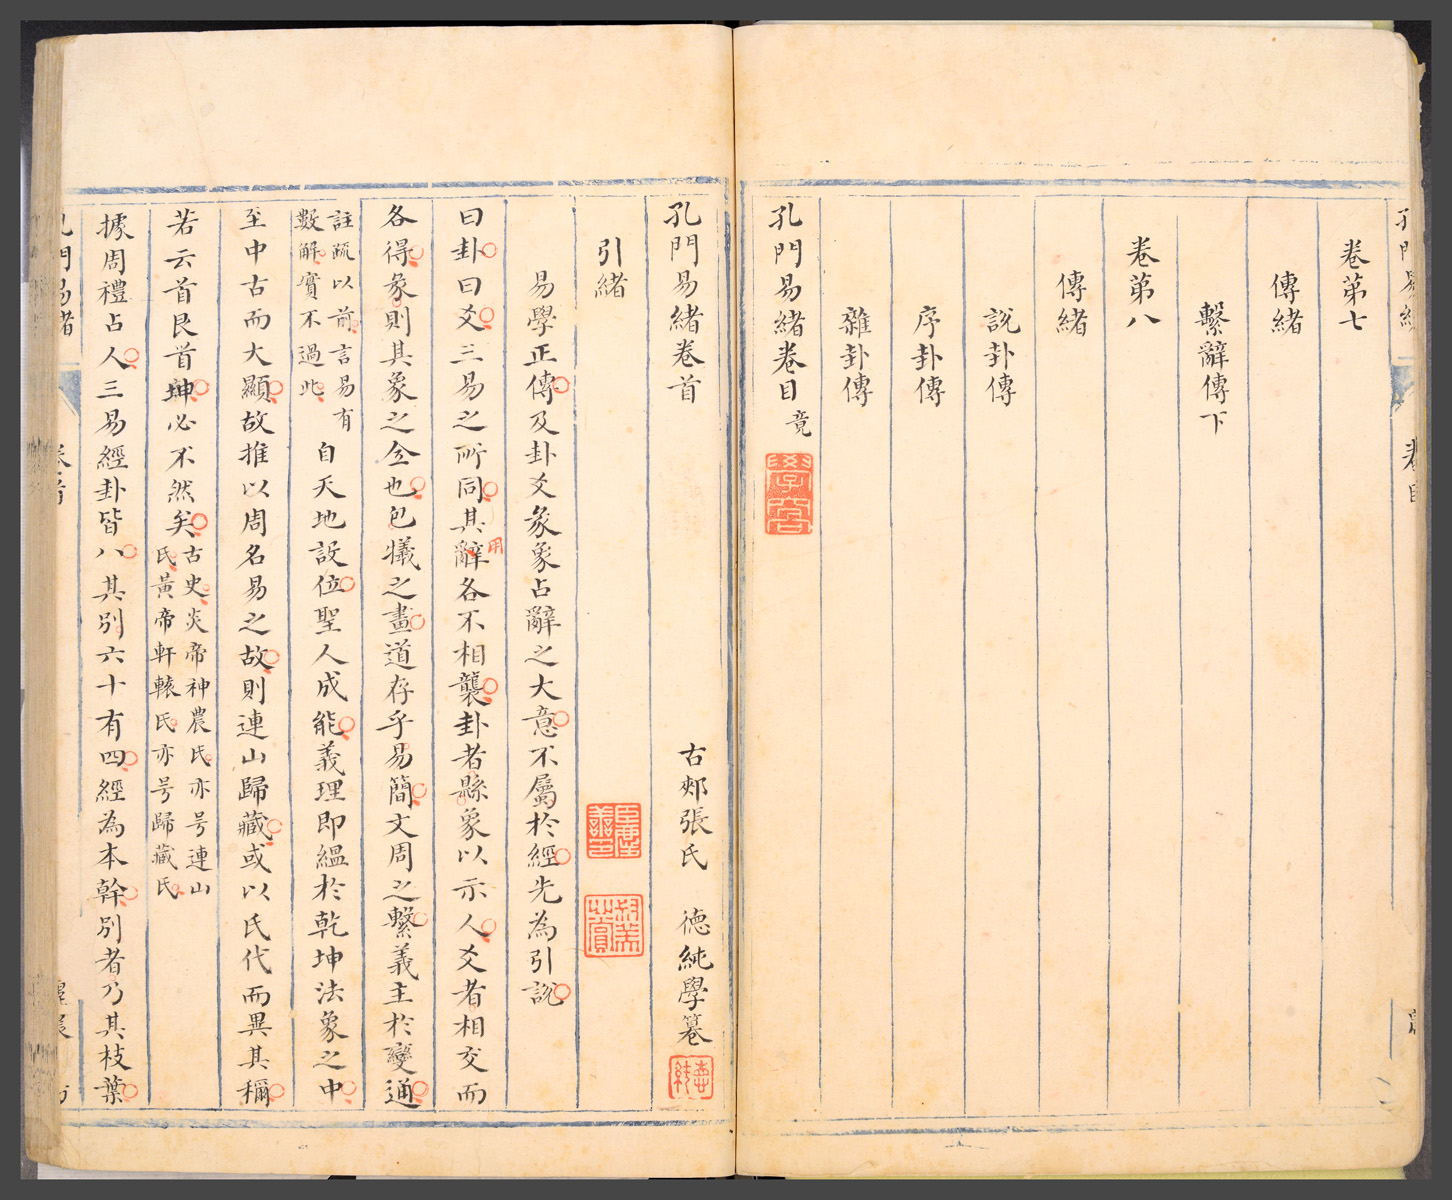 卷第七
傳緒
繫辭傳下
卷第八
傳緒
說卦傳
序卦傳
雜卦傳
孔門易緒卷目竟
孔門易緒卷首
古郟張氏 德純學纂
引緒
易學正傳及卦爻彖象占辭之大意不屬於經先為引說
曰卦曰爻三易之所同其辭各不相襲卦者縣象以示人爻者相交而
用
各得彖則其象之仝也包犧之畫道存乎易簡文周之繫義主於變通
註疏以前言易有
數解實不過此
自天地設位聖人成能義理即緼於乾坤法象之中
至中古而大顯故推以周名易之故則連山歸藏或以氏代而異其稱
若云首艮首坤必不然矣
古史炎帝神農氏亦号連山
氏黃帝軒轅氏亦号歸藏氏
據周禮占人三易經卦皆八其別六十有四經為本幹別者乃其枝葉
孔門易緒
卷首